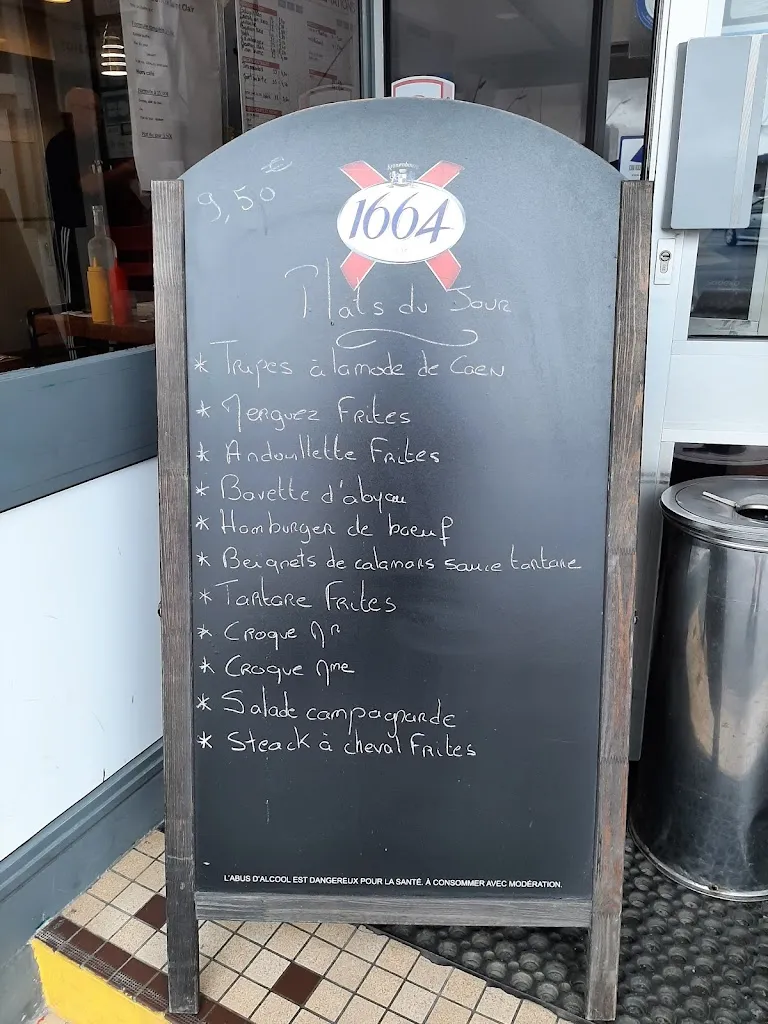 9,50 €
Kronenbourg
1664
Plats du Jour
* Tripes à la mode de Caen
* Merguez Frites
* Andouillette Frites
* Bavette d'aloyau
* Hamburger de bœuf
* Beignets de calamars sauce tartare
* Tartare Frites
* Croque Mr
* Croque Mme
* Salade campagnarde
* Steack à cheval Frites
L'ABUS D'ALCOOL EST DANGEREUX POUR LA SANTÉ. À CONSOMMER AVEC MODÉRATION.